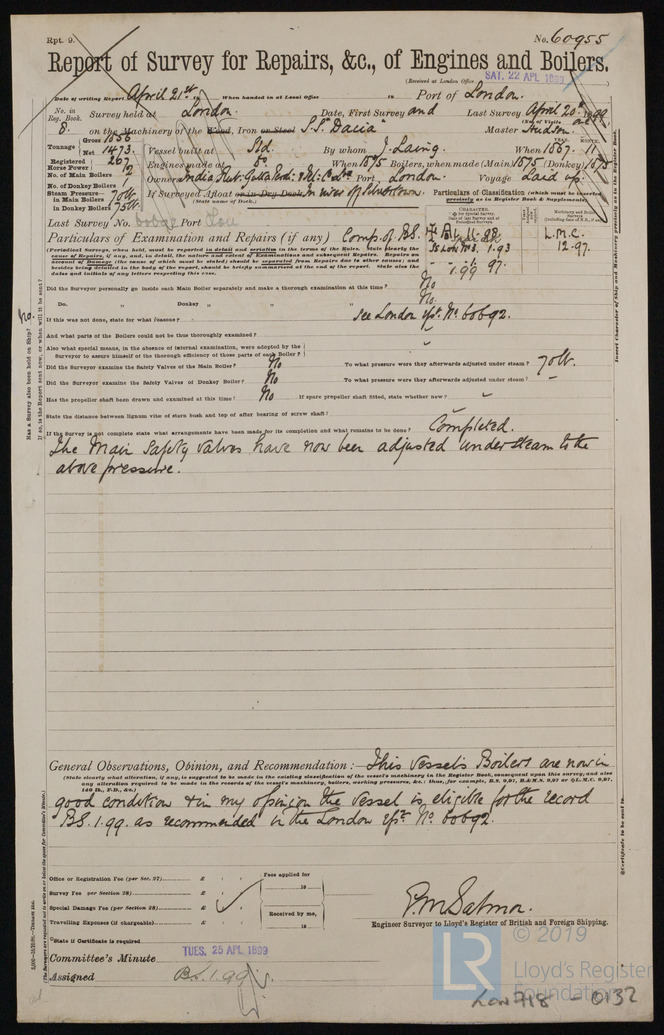 Rpt. 9.
No. 60955
Report of Survey for Repairs, &c., of Engines and Boilers.
(Received at London Office SAT. 22 APL 1899
Date of writing Report April 21st When handed in at Local Office 18 Port of London.
No. in Reg. Book. Survey held at London Date, First Survey and Last Survey April 20th 1899
8. on the Machinery of the Wood, Iron or Steel S.S. "Dacia" Master Hudson.
Tonnage Gross 1856
Net 1473. Vessel built at Sld. By whom J. Laing. When 1867. 11
Registered Horse Power 267 Engines made at do When 1875 Boilers, when made (Main) 1875 (Donkey) 1875
No. of Main Boilers 2 Owners India Rub. Gutta Port London. Voyage Laid up.
No. of Donkey Boilers
Steam Pressure in Main Boilers 70 lb. If Surveyed Afloat or in Dry Dock
(State name of Dock.)
in Donkey Boilers 75 lb.
Particulars of Classification (which must be inserted precisely as in Register Book & Supplements).
Last Survey No. 60692 Port Lon
Particulars of Examination and Repairs (if any) Comp. of B.S.
L.M.C. 12.97.
1.93
1.99
(Periodical Surveys, when held, must be reported in detail and seriatim in the terms of the Rules. State clearly the cause of Repairs, if any, and, in detail, the nature and extent of Examinations and subsequent Repairs. Repairs on account of Damage (the cause of which must be stated) should be separated from Repairs due to other causes; and besides being detailed in the body of the report, should be briefly summarised at the end of the report. State also the dates and initials of any letters respecting this case.
Did the Surveyor personally go inside each Main Boiler separately and make a thorough examination at this time? No
Do. " Donkey " " " No.
If this was not done, state for what reasons? See London rpt. No. 60692.
And what parts of the Boilers could not be thus thoroughly examined?
Also what special means, in the absence of internal examination, were adopted by the Surveyor to assure himself of the thorough efficiency of those parts of each Boiler?
Did the Surveyor examine the Safety Valves of the Main Boiler? No To what pressure were they afterwards adjusted under steam? 70 lb.
Did the Surveyor examine the Safety Valves of Donkey Boiler? No To what pressure were they afterwards adjusted under steam? -
Has the propeller shaft been drawn and examined at this time? No If spare propeller shaft fitted, state whether new? -
State the distance between lignum vitæ of stern bush and top of after bearing of screw shaft? -
If the Survey is not complete state what arrangements have been made for its completion and what remains to be done? Completed.
The Main Safety Valves have now been adjusted under steam to the
above pressure.
General Observations, Opinion, and Recommendation:— This vessel's Boilers are now in
(State clearly what alteration, if any, is suggested to be made in the existing classification of the vessel's machinery in the Register Book, consequent upon this survey, and also any alteration required to be made in the records of the vessel's machinery, boilers, working pressures, &c.: thus, for example, B.S. 9.97, B.&M.S. 9.97 or L.M.C. 9.97, 140 lb., F.D., &c.)
good condition & in my opinion the vessel is eligible for the record
BS. 1.99. as recommended in the London rpt. No. 60692.
Office or Registration Fee (per Sec. 27) £
Survey Fee per Section 28) £
Special Damage Fee (per Section 28) £
Travelling Expenses (if chargeable) £
Fees applied for
18
Received by me,
18
P. M. Salmon.
Engineer Surveyor to Lloyd's Register of British and Foreign Shipping.
State if Certificate is required
Committee's Minute TUES. 25 APL 1899
Assigned B.S. 1.99
© 2019
LR
Lloyd's Register
Foundation
LON 718 - 0132